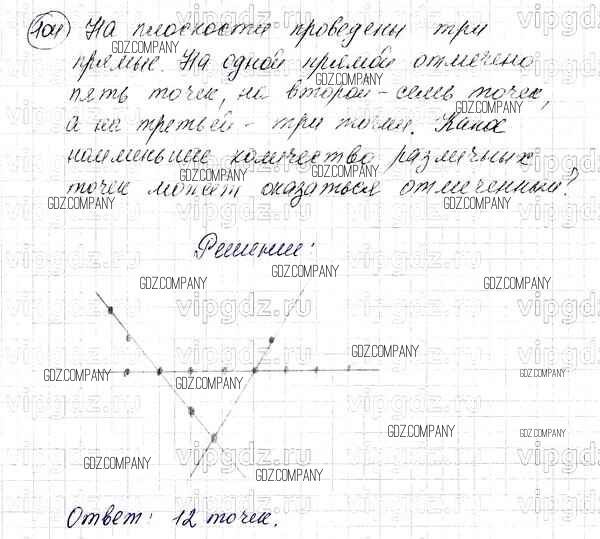 104) На плоскости проведены три
прямые. На одной прямой отмечено
пять точек, на второй - семь точек,
а на третьей - три точки. Какое
наименьшее количество различных
точек может оказаться отмеченным?
Решение:
Ответ: 12 точек.
GDZ.COMPANY
vipgdz.ru